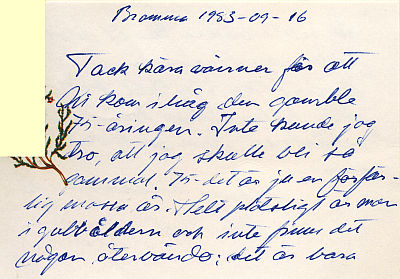 Bromma 1983-09-16
Tack kära vänner för att
Ni kom ihåg den gamble
75-åringen. Inte kunde jag
tro, att jag skulle bli så
gammal. 75-det är ju en förfär-
lig massa år. Helt plötsligt är man
i gubbåldern och inte finns det
någon återvändo; det är bara